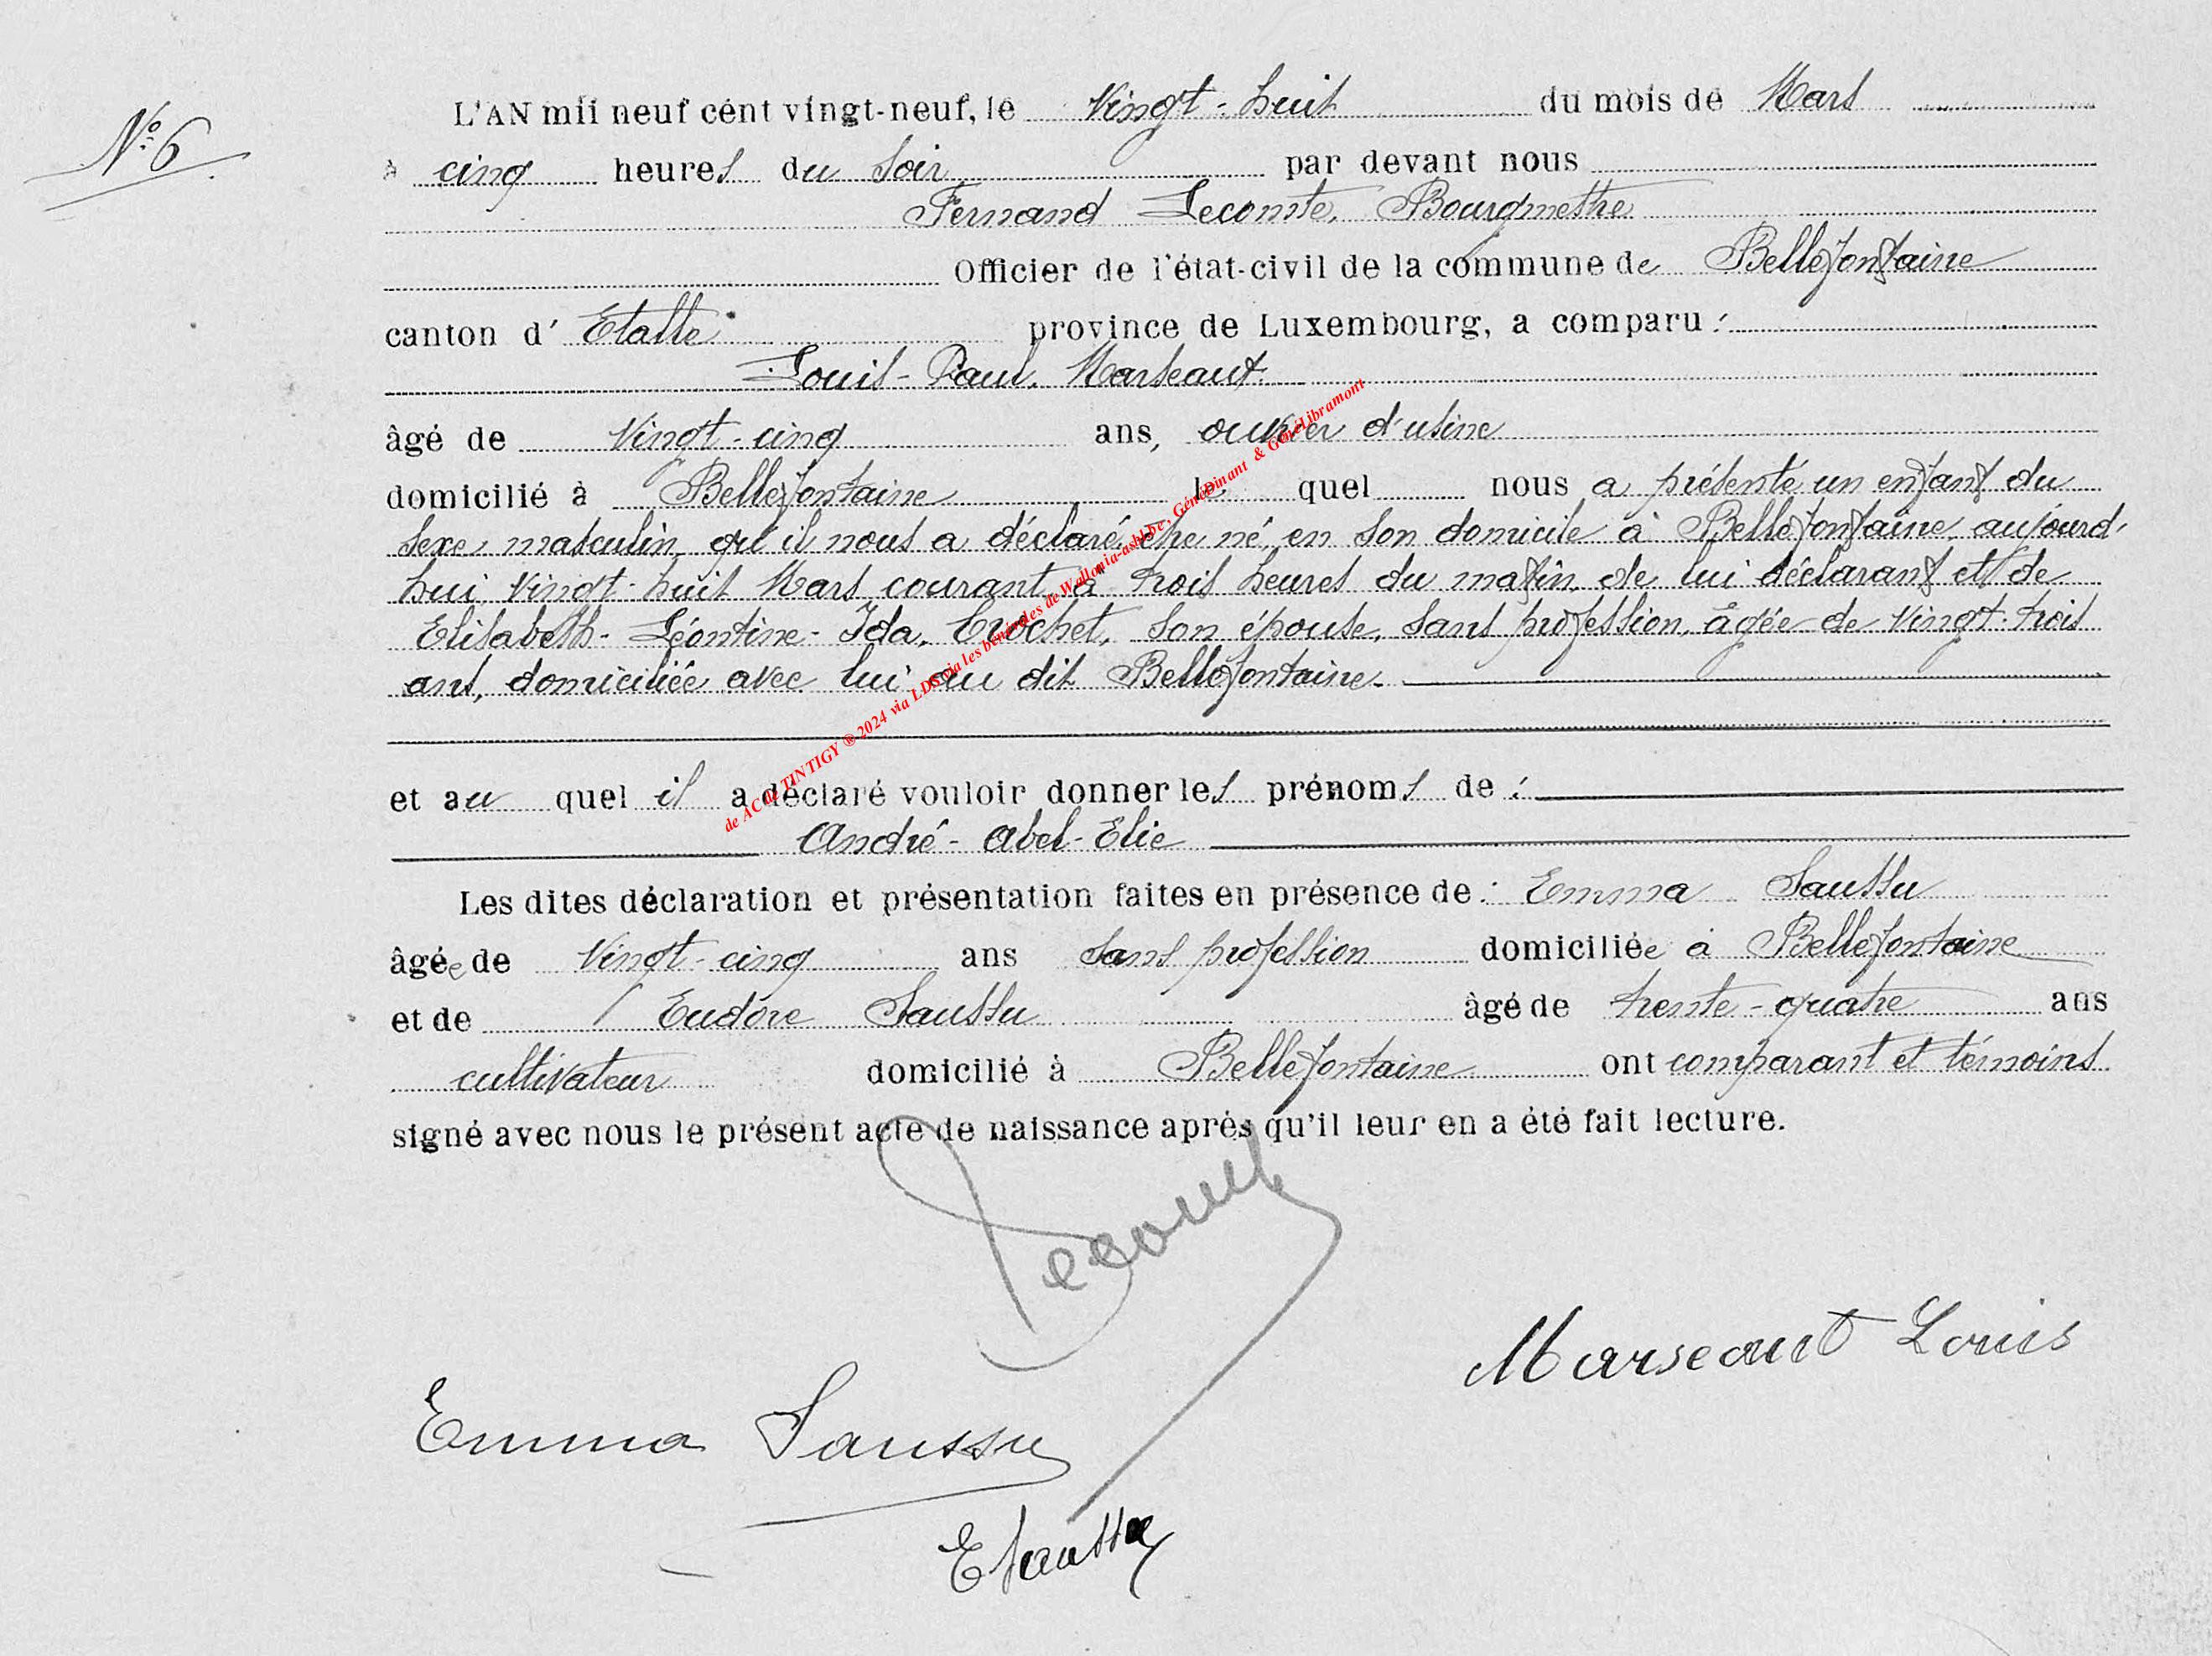 N° 6
L'AN mil neuf cent vingt-neuf, le Vingt-huit du mois de Mars
à cinq heures du soir par devant nous
Fernand Lecomte, Bourgmestre
Officier de l'état-civil de la commune de Bellefontaine
canton d' Etalle province de Luxembourg, a comparu :
Louis-Paul, Marseaut
âgé de Vingt-cinq ans, ouvrier d'usine
domicilié à Bellefontaine le quel nous a présenté un enfant du
sexe masculin, qu'il nous a déclaré être né en son domicile à Bellefontaine, aujourd-
hui Vingt-huit Mars courant à trois heures du matin, de lui déclarant et de
Elisabeth-Léontine-Ida, Crochet, son épouse, sans profession, âgée de Vingt-trois
ans, domiciliée avec lui au dit Bellefontaine.
et au quel il a déclaré vouloir donner les prénoms de :
André-Abel-Elie
Les dites déclaration et présentation faites en présence de : Emma Saussu
âgée de Vingt-cinq ans sans profession domiciliée à Bellefontaine
et de Eudore Saussu âgé de trente-quatre ans
cultivateur domicilié à Bellefontaine ont comparant et témoins
signé avec nous le présent acte de naissance après qu'il leur en a été fait lecture.
Marseaut Louis
Emma Saussu
E Saussu
de AC de TINTIGY ® 2024 via LDS via les bénévoles de Wallonia-asbl.be, GénéDinant & GénéLibramont